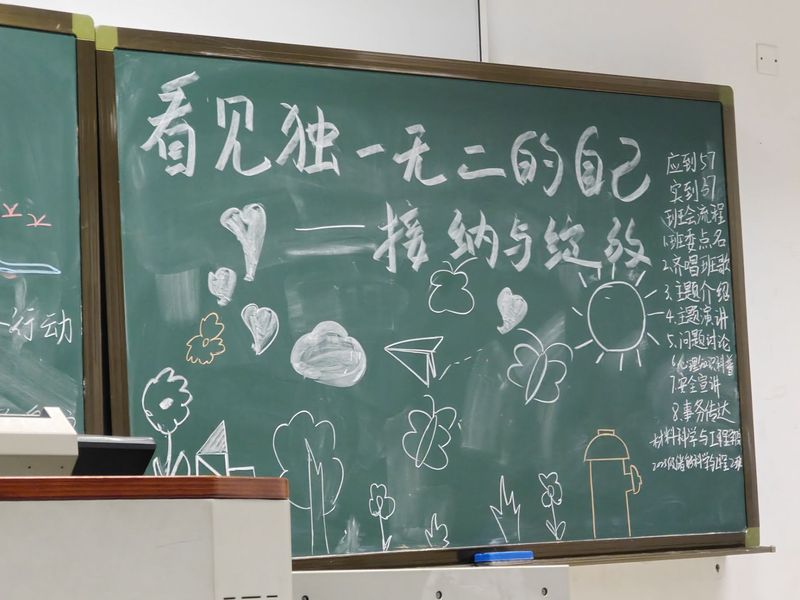 看见独一无二的自己
——接纳与绽放
应到57
实到57
班会流程
1.班委点名
2.齐唱班歌
3.主题介绍
4.主题演讲
5.问题讨论
6.心理知识科普
7.安全宣讲
8.事务传达
材料科学与工程学院
储能科学与工程2班
行动